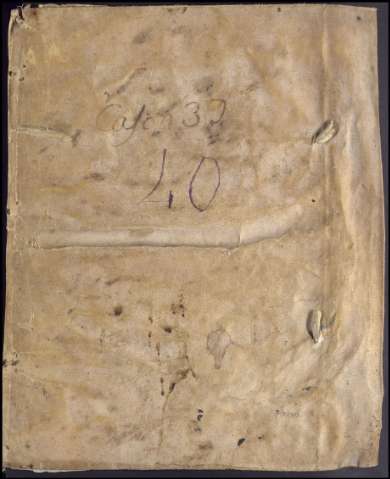 Cajon 32
40